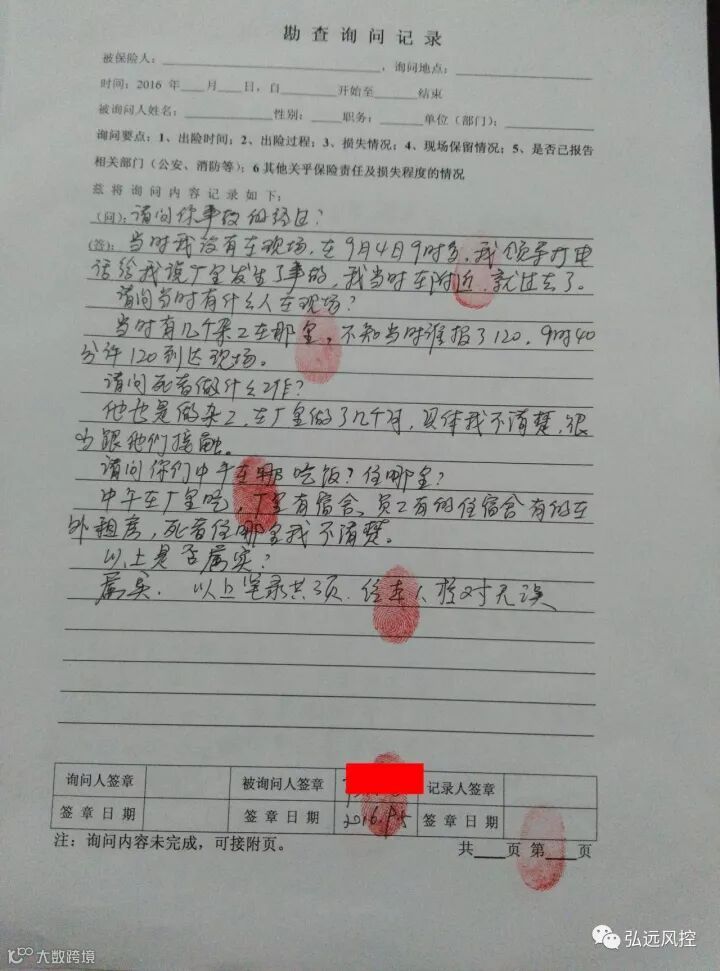 勘查询问记录
被保险人：____，询问地点：____
时间：2016 年___月___日，自____开始至____结束
被询问人姓名：____性别：___职务：____单位（部门）：____
询问要点：1、出险时间；2、出险过程；3、损失情况；4、现场保留情况；5、是否已报告
相关部门（公安、消防等）；6 其他关乎保险责任及损失程度的情况
兹将询问内容记录如下：
（问）：请问你事故的经过？
（答）：当时我没有在现场，在9月4日9时多，我领导打电
话给我说厂里发生了事故，我当时在附近，就过去了。
请问当时有什么人在现场？
当时有几个杂工在那里，不知当时谁报了120，9时40
分许120到达现场。
请问死者做什么工作？
他也是做杂工，在厂里做了几个月，具体我不清楚，很
少跟他们接触。
请问你们中午在哪吃饭？住哪里？
中午在厂里吃，厂里有宿舍，员工有的住宿舍有的在
外租房，死者住哪里我不清楚。
以上是否属实？
属实．以上笔录共3页．经本人核对无误
询问人签章 被询问人签章 记录人签章
签章日期 签章日期 2016.9.5 签章日期
注：询问内容未完成，可接附页。 共___页 第___页
大数跨境
弘远风控